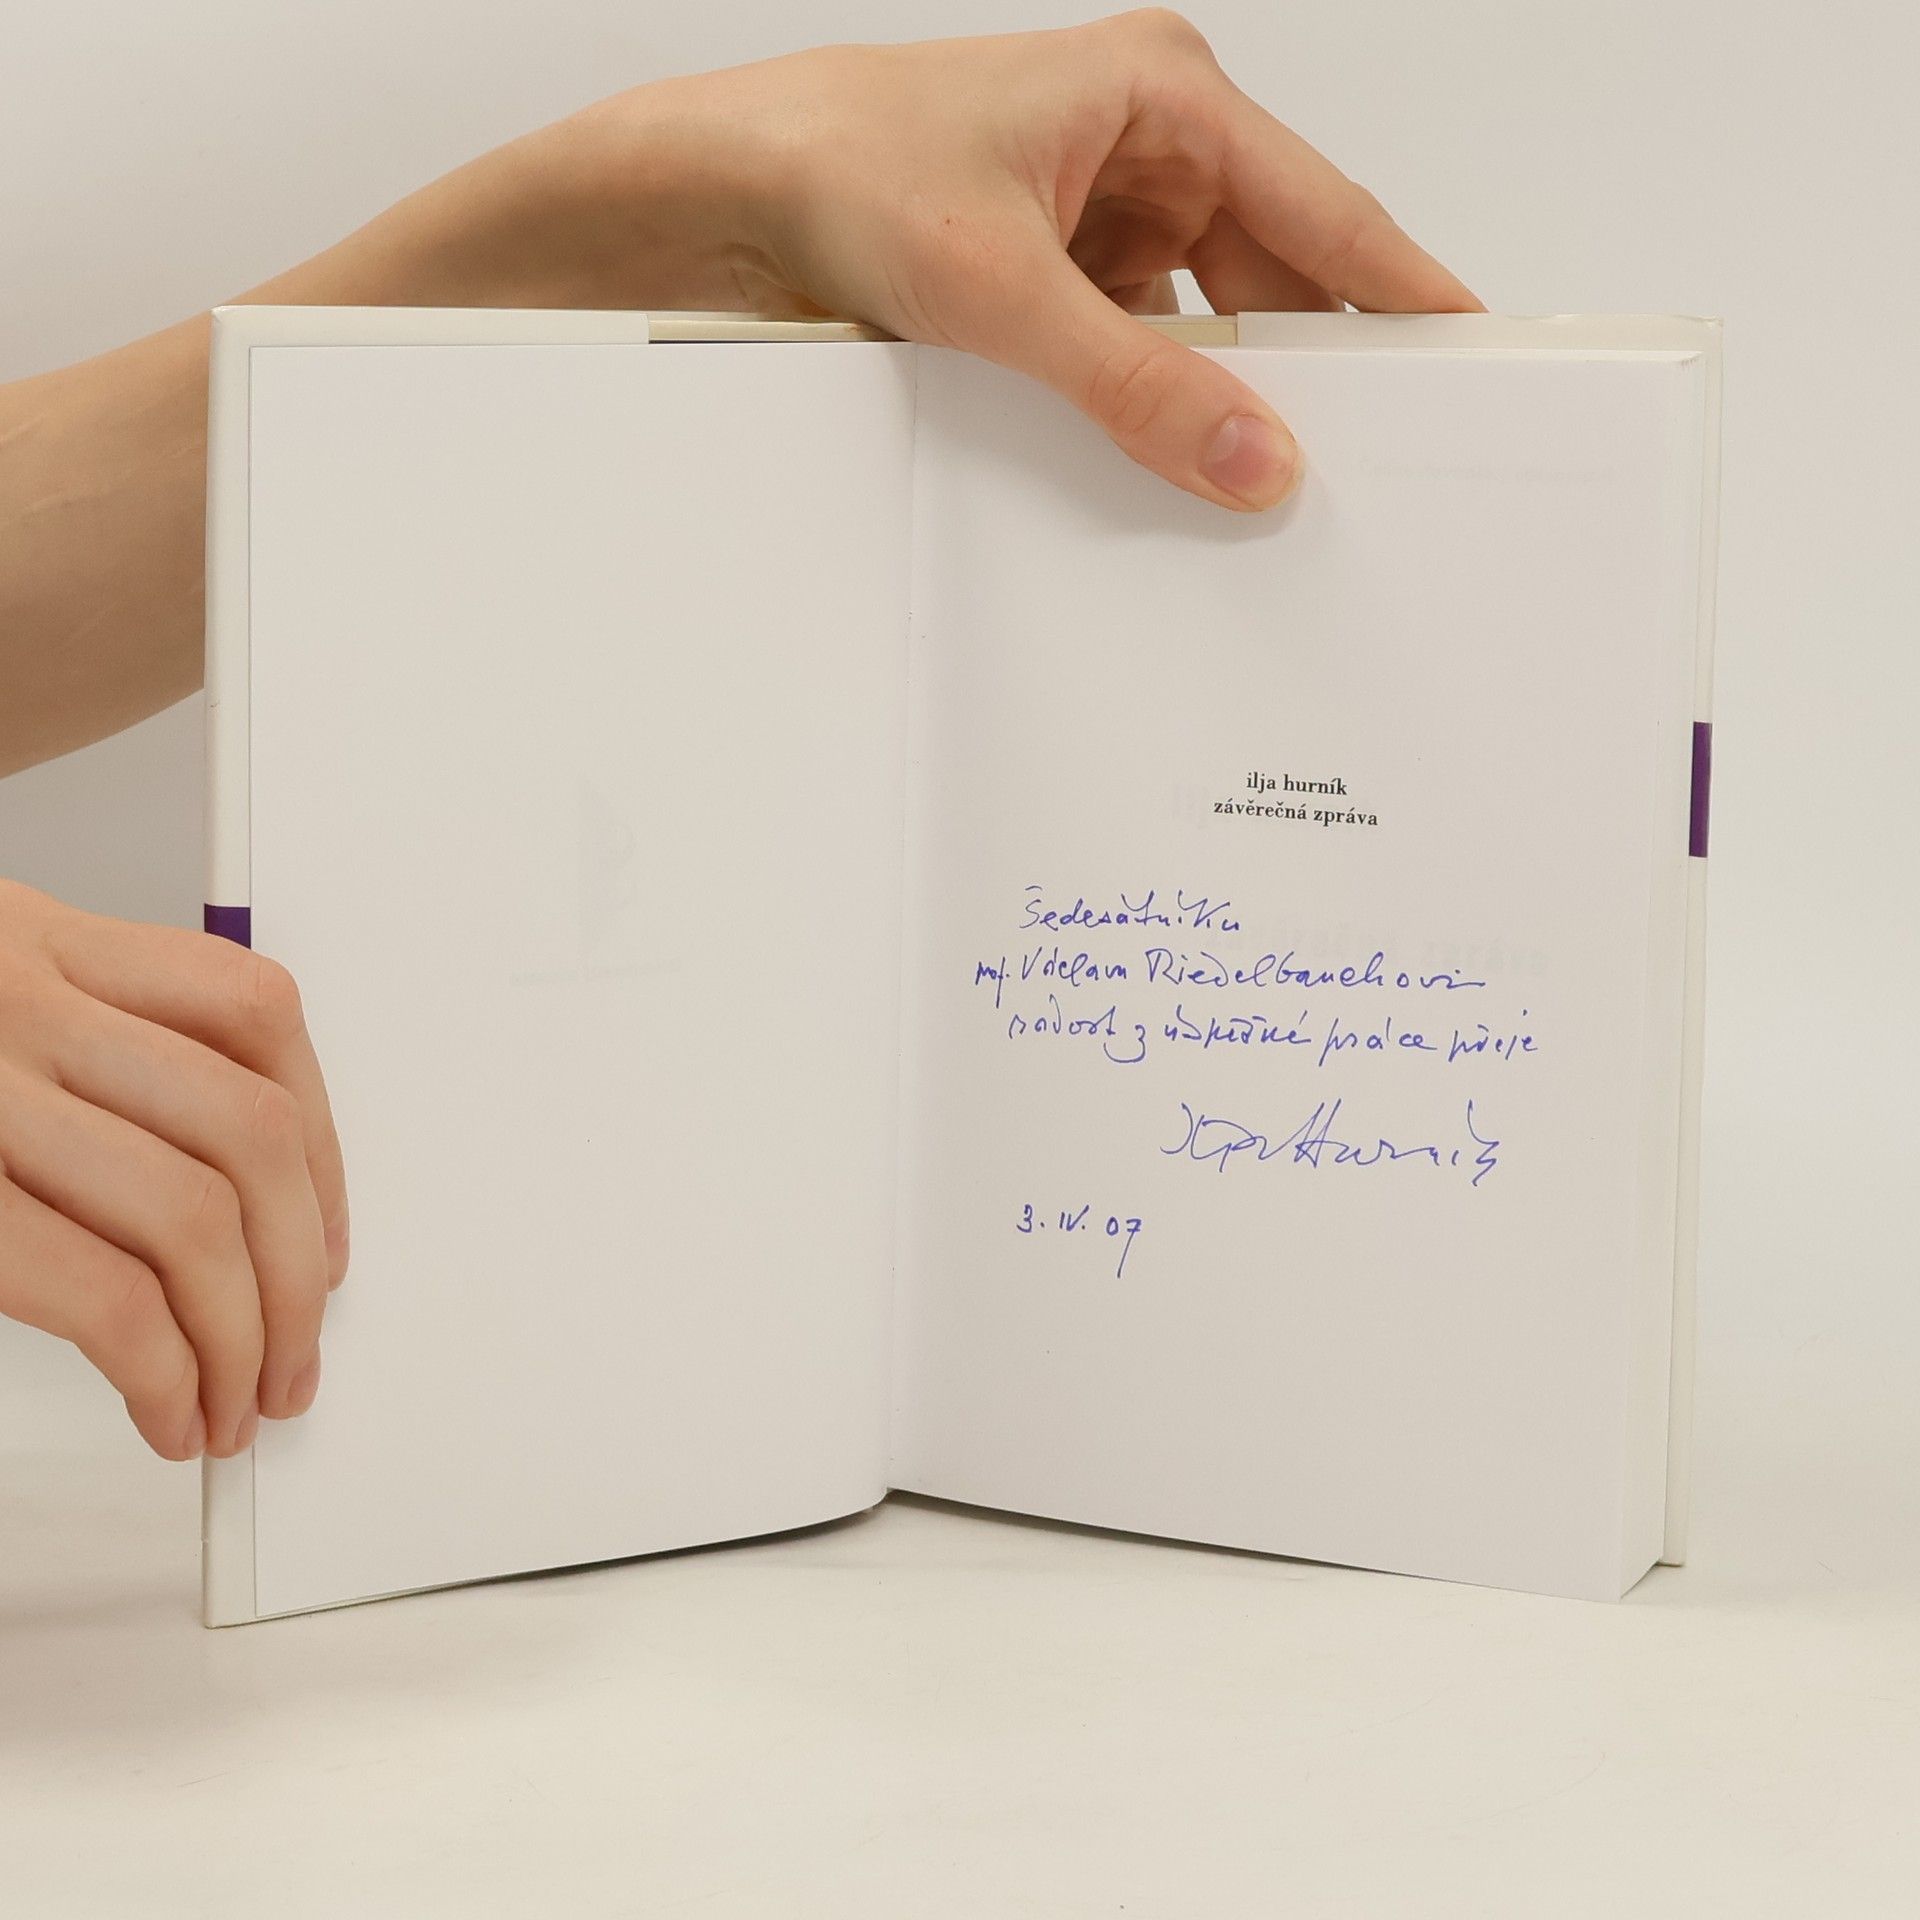 ilja hurník
závěrečná zpráva
Šedesátníku
prof. Václavu Riedelbauchovi
radost z úspěšné práce přeje
Ilja Hurník
3. IV. 07